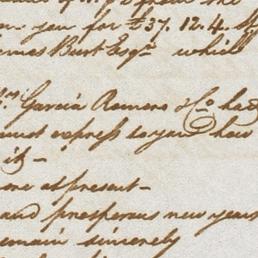 on you for £37. 12. 4.
James Burt Esqr which
Garcia Romero & Co had
cannot express to you how
it —
me at present —
and prosperous new years
remain sincerely